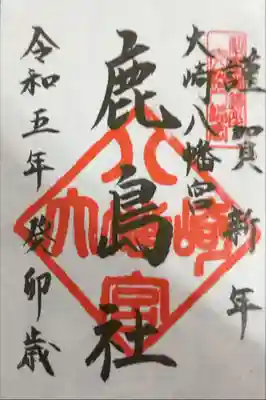 謹賀新年
大崎八幡宮
鹿島社
令和五年癸卯歳